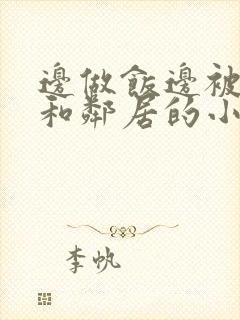 邊做飯邊被
和鄰居的小
李帆